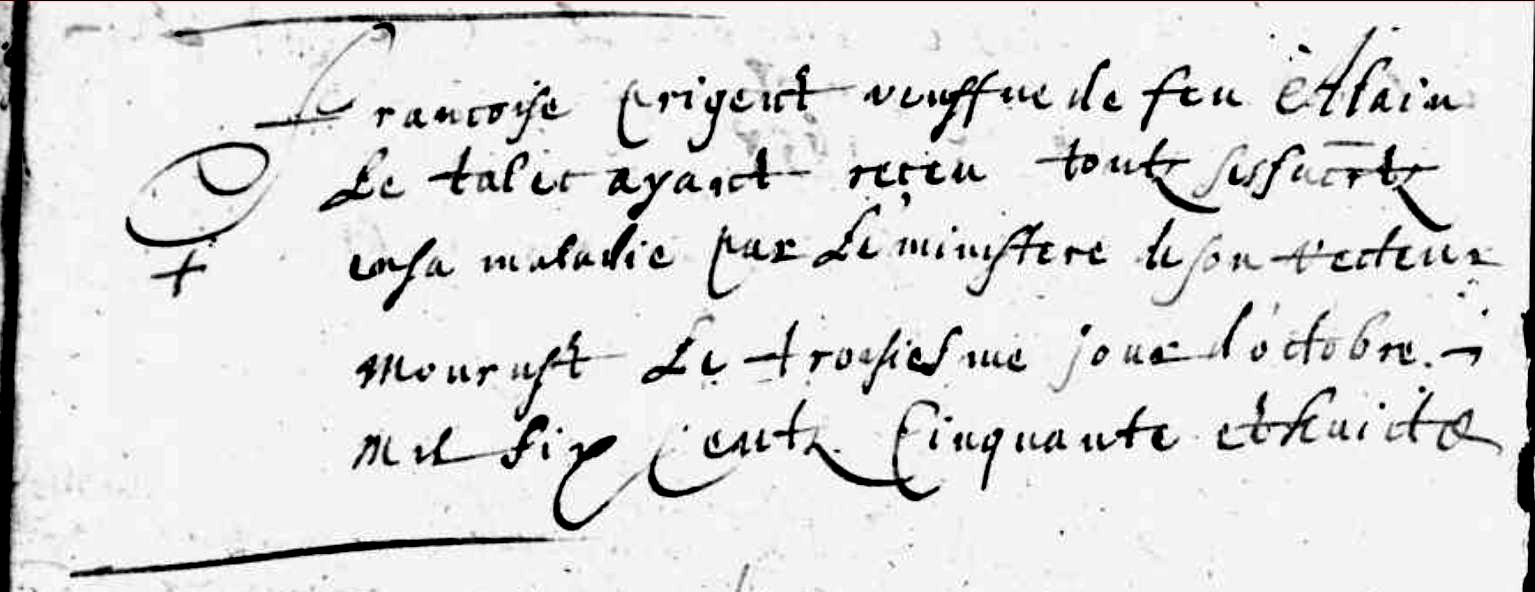 Francoise Prigent veuffve de feu Allain
Le talec ayant reçeu toutz ses sacrtz
en sa maladie par Le ministere de son recteur
Mourust Le troisiesme jour d'octobre
Mil six Centz Cinquante et huict